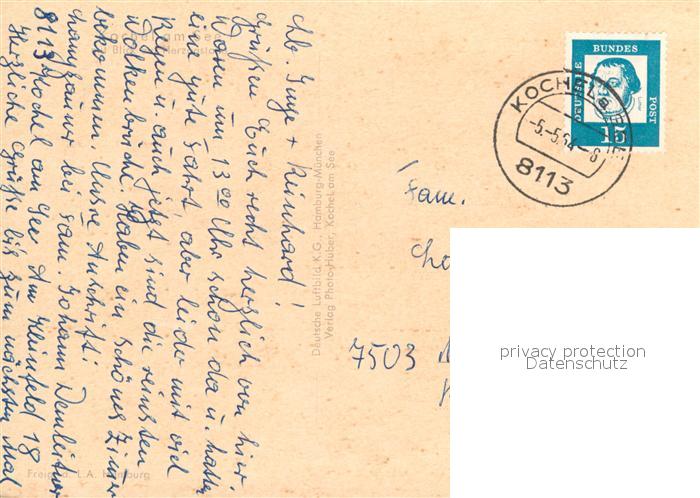 Lb. Inge + Reinhard!
Grüßen Euch recht herzlich von hier.
Waren um 13 00 Uhr schon da u. hatten
eine gute Fahrt, aber leider mit viel
Regen u. auch jetzt sind die reinsten
Wolkenbrüche. Haben ein schönes Zimmer
bekommen. Unsre Anschrift:
bei Fam. Johann Demleitner
8113 Kochel am See Am Kleinfeld 18
Herzliche Grüße bis zum nächsten Mal
Kochel am See
Blick Herzogstand
Freig. d. L.A. Hamburg
Deutsche Luftbild K.G., Hamburg-München
Verlag Photo-Huber, Kochel am See
DEUTSCHE
BUNDES
POST
Luther
15
KOCHEL a. SEE
-5.-5.64-6
8113
Fam.
7503
privacy protection
Datenschutz